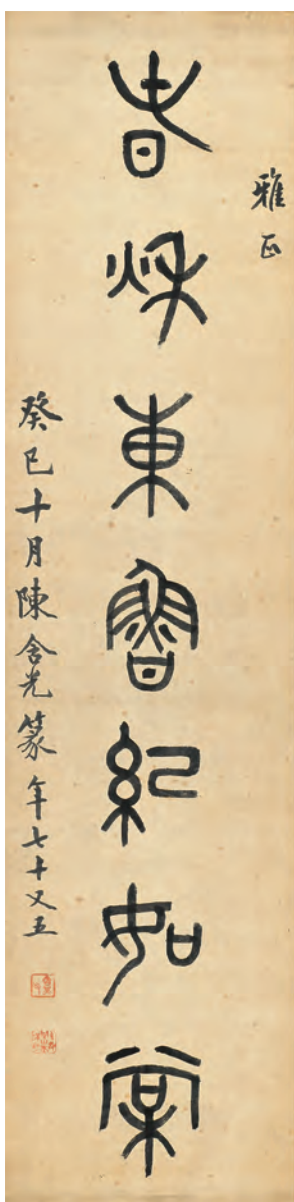 雅正
春秋東魯紀如棠
癸巳十月陳含光篆年七十又五